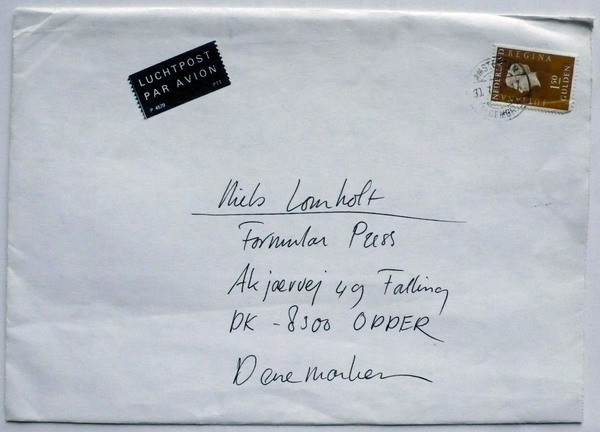 LUCHTPOST
PAR AVION
P 4679 PTT
NEDERLAND
REGINA
JULIANA
1.50
GULDEN
AMST
Niels Lomholt
Formular Press
Akjærvej 49 Falling
DK - 8300 ODDER
Danemarken